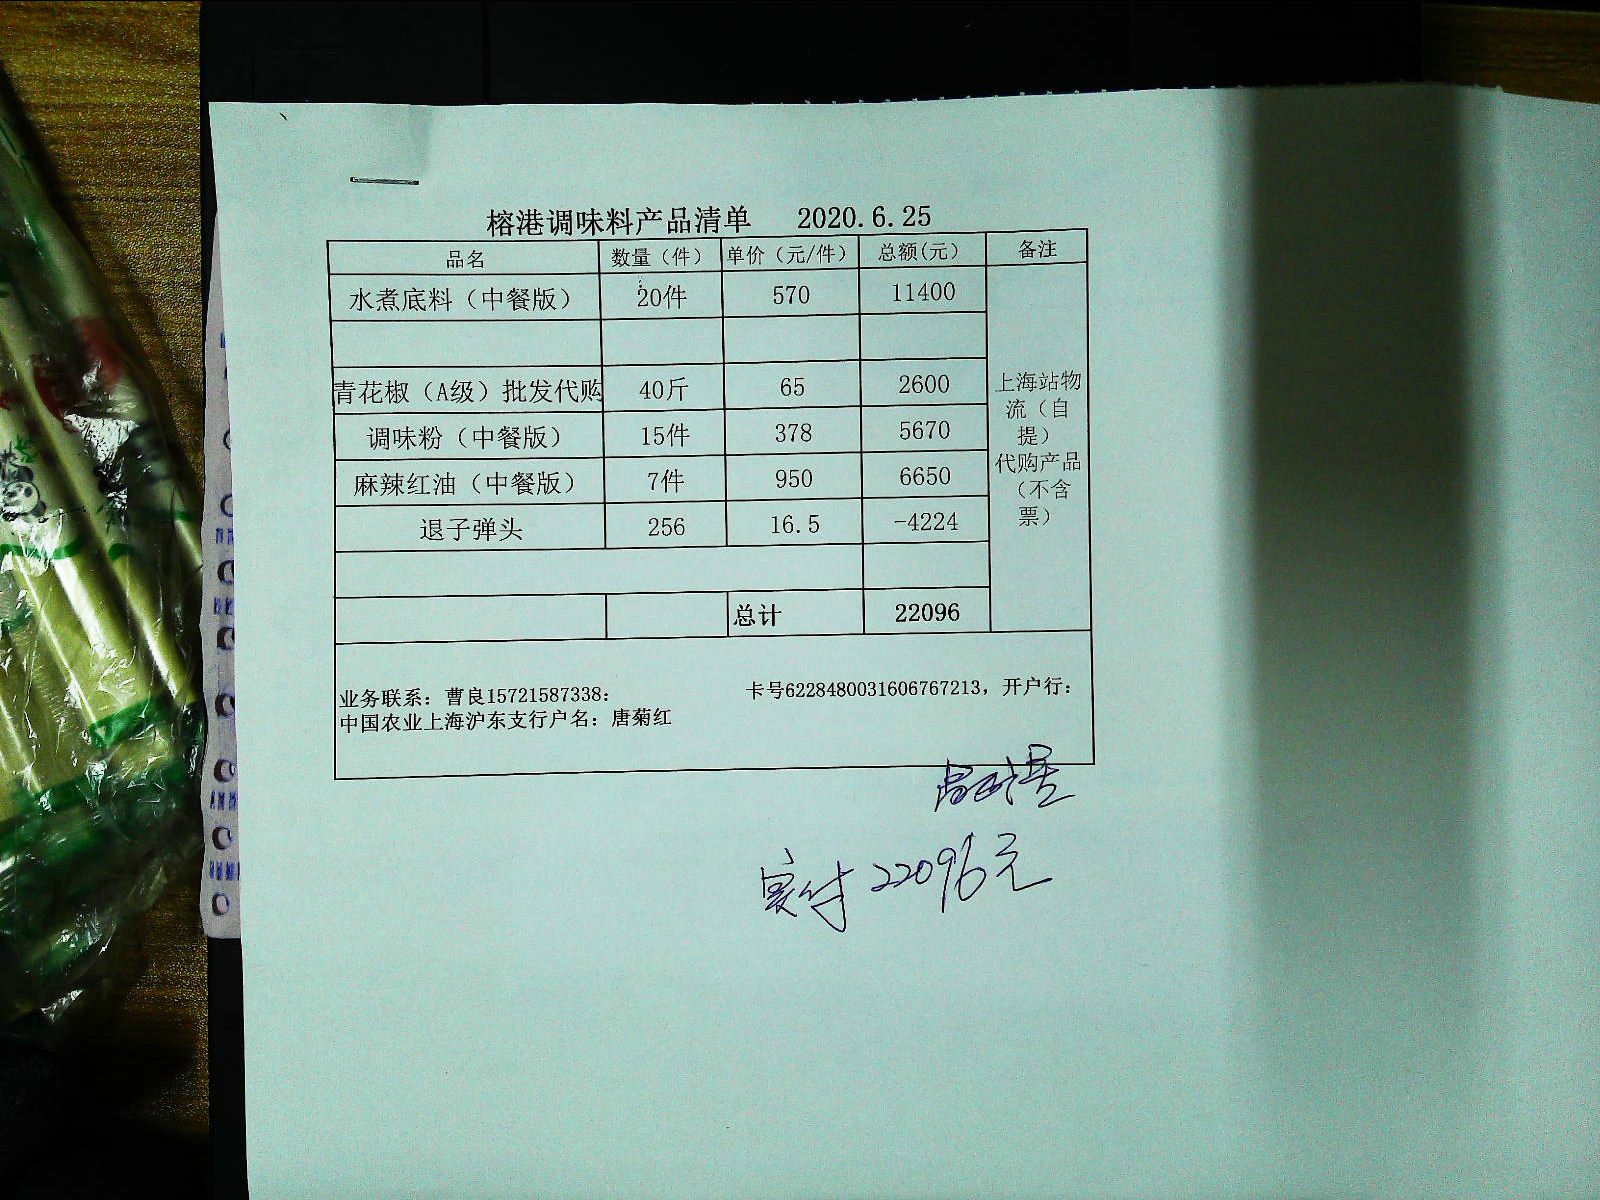 榕港调味料产品清单 2020.6.25
品名 数量（件） 单价（元/件） 总额(元) 备注
水煮底料（中餐版） 20件 570 11400
青花椒（A级）批发代购 40斤 65 2600
调味粉（中餐版） 15件 378 5670
麻辣红油（中餐版） 7件 950 6650
退子弹头 256 16.5 -4224
总计 22096
上海站物
流（自
提）
代购产品
（不含
票）
业务联系：曹良15721587338： 卡号6228480031606767213，开户行：
中国农业上海沪东支行户名：唐菊红
实付22096元